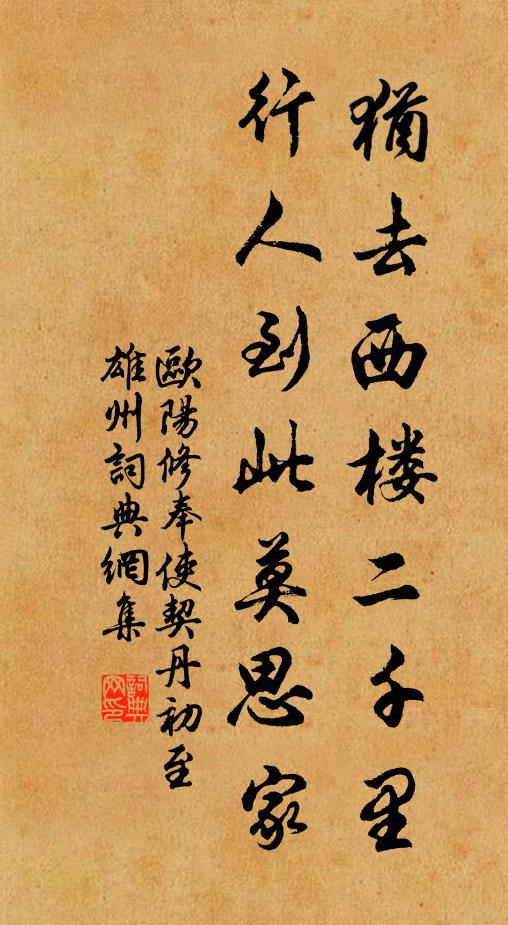 猶去西楼二千里
行人到此莫思家
歐陽修奉使契丹初至
雄州詞典網集
詞典
网印